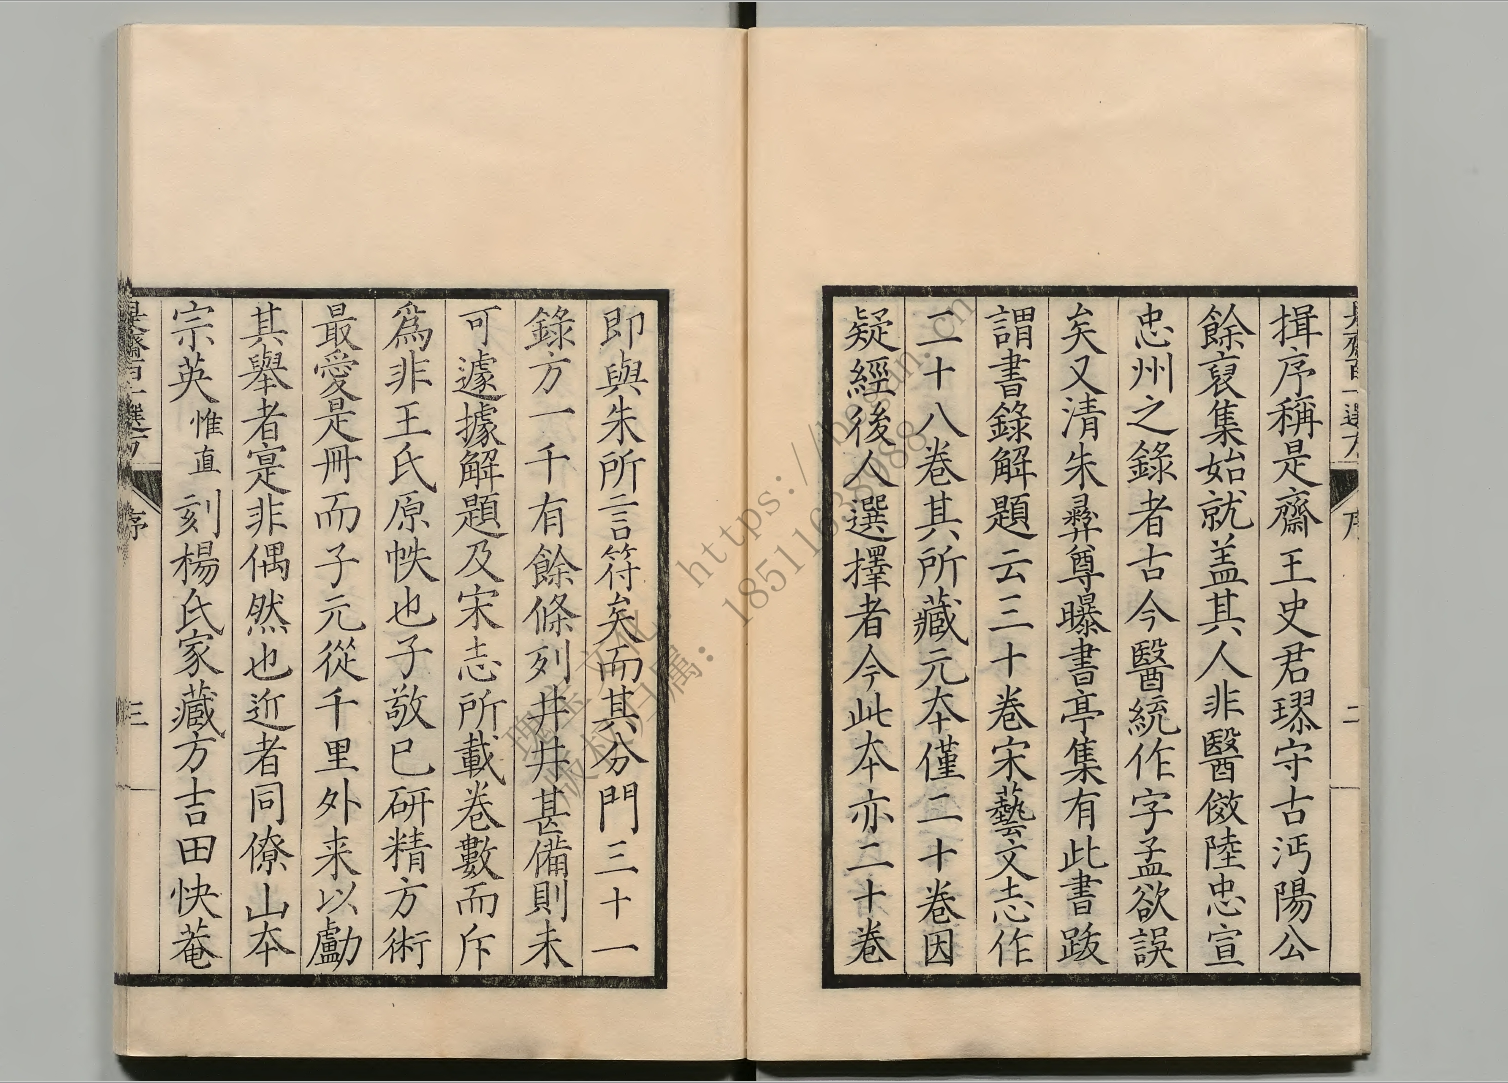 揖序稱是齋王史君璆守古沔陽公
餘裒集始就盖其人非醫傚陸忠宣
忠州之錄者古今醫統作字孟欲誤
矣又清朱彛尊曝書亭集有此書跋
謂書錄解題云三十卷宋藝文志作
二十八卷其所藏元夲僅二十卷因
疑經後人選擇者今此夲亦二十卷
即與朱所言符矣而其分門三十一
錄方一千有餘條列井井甚備則未
可遽據解題及宋志所載卷數而斥
爲非王氏原帙也子敬巳研精方術
最愛是冊而子元從千里外来以勴
其舉者寔非偶然也近者同僚山夲
宗英惟直刻楊氏家藏方吉田快菴
是齋百一選方
序
二
是齋百一選方
序
三
https://
18511638988
版权归属：